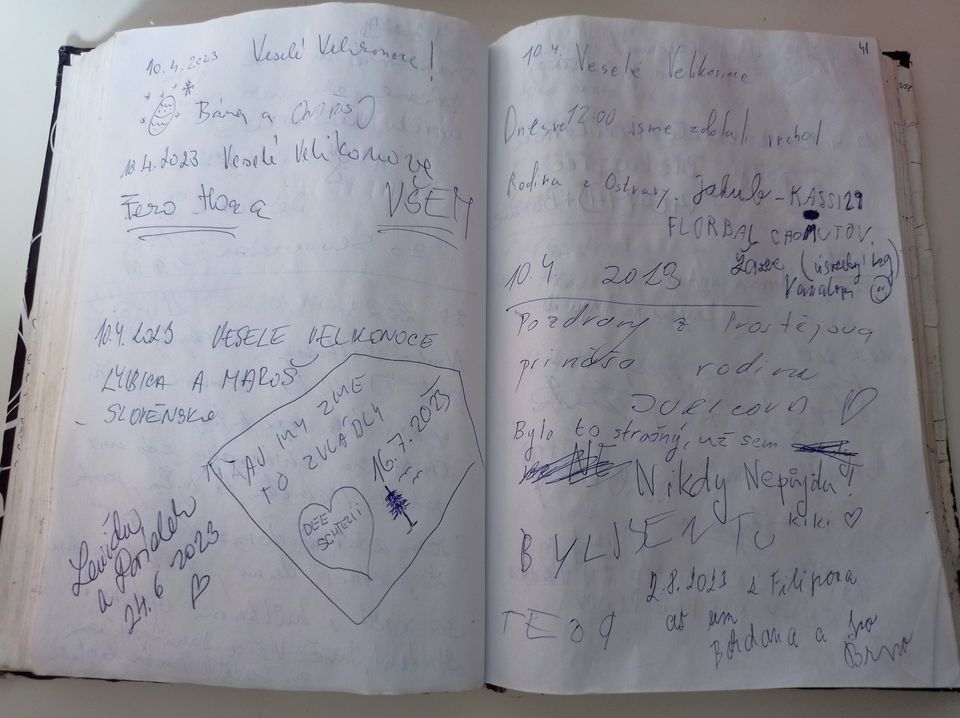 10.4.2023 Veselé Velikonoce!
Bára a
10.4.2023 Veselé Velikonoce
Fero Hora VŠEM
10.4.2023 VESELE VELIKONOCE
LYBICA A MAROŠ
SLOVENSKO
ŤAV MY ZME
TO ZVLÁDLY
16.7.2023
DEE
a
24.6 2023
41
10.4. Veselé Velikonoce
Dnes ve 12:00 jsme zdolali vrchol
Rodina z Ostravy. Jakub - KASSI
FLORBAL CHOMUTOV.
10.4. 2023
Pozdravy z Prostějova
přináší rodina
Bylo to strašný, už sem
Nikdy Nepůjdu!
kiki
BYLI SEM TU
2.8.2023 z Filipova
až sem
Bohdana a Ivo
Brno